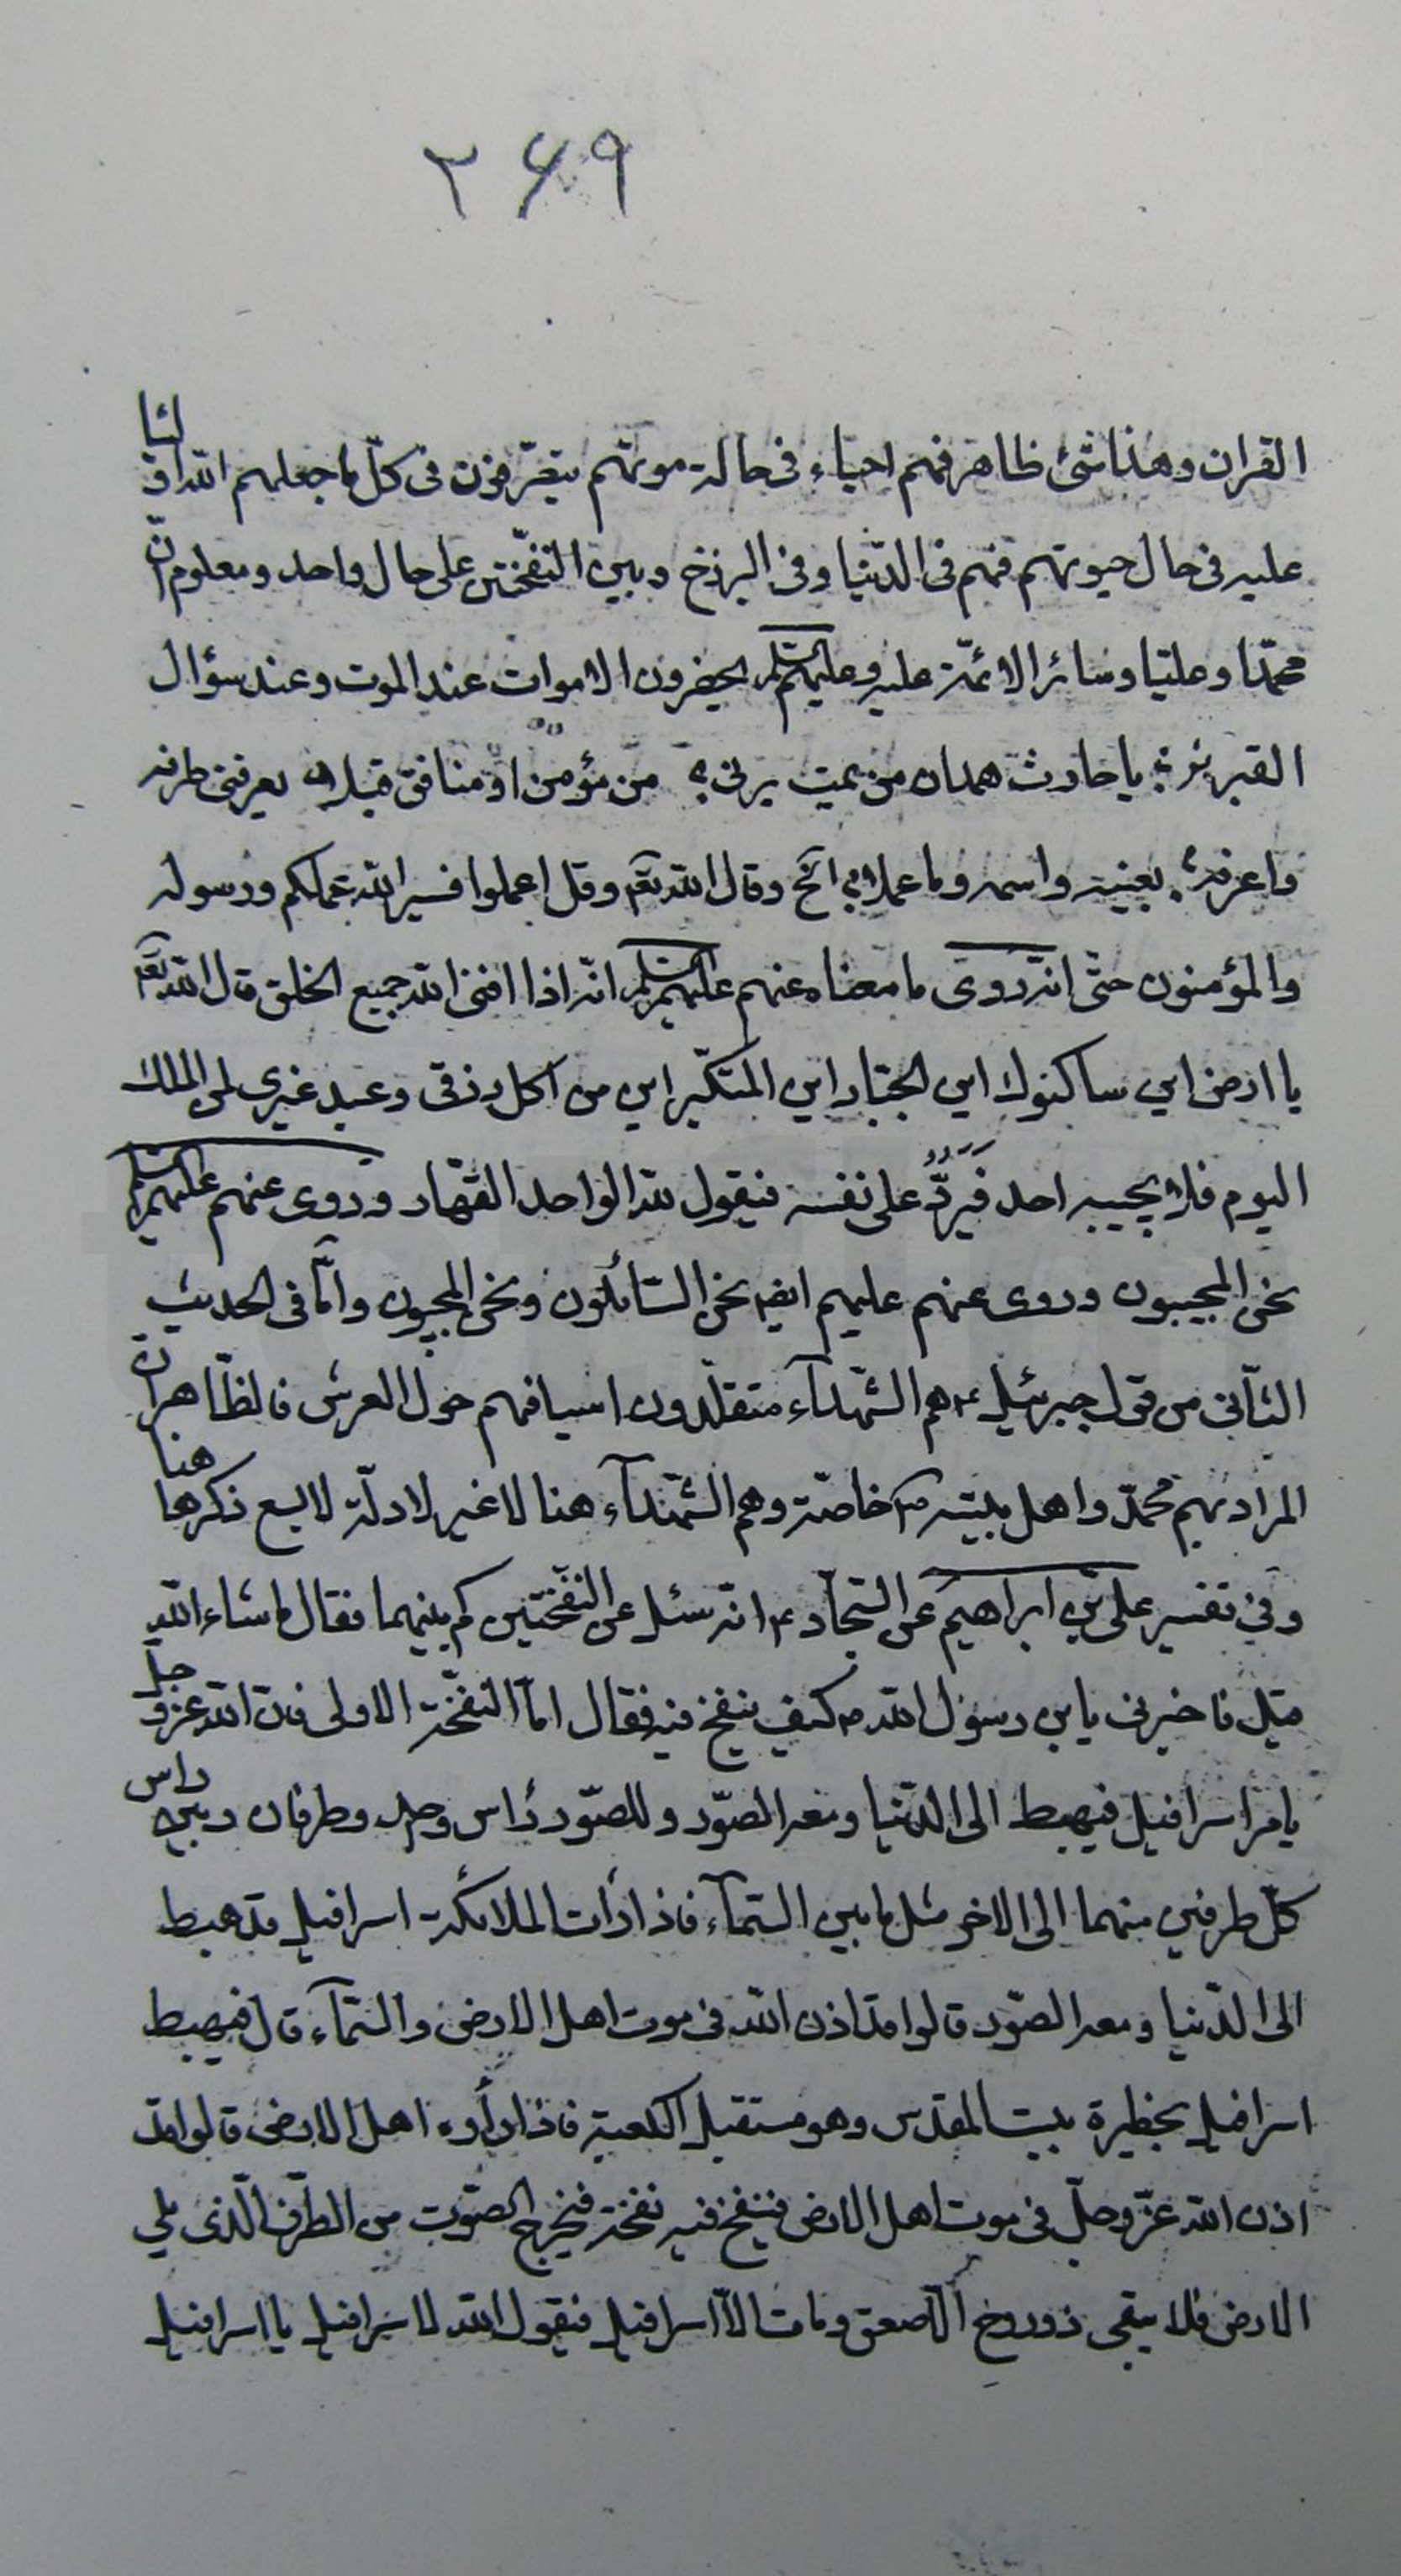 ٢۶٩
القران وهذا شئ ظاهر فهم احياء فى حالة موتهم يتصرفون فى كلّ ما جعلهم الله اولئا
عليه فى حال حيوتهم فهم فى الدّنيا وفى البرزخ وبين النّفختين على حال واحد ومعلوم انّ
محمّدا وعليّا وسائر الائمّة عليه وعليهم السلم يحضرون الاموات عند الموت وعند سؤال
القبر يا حارث همدان من يمت يرنى من مؤمن او منافق قبلا يعرفنى طرفه
واعرفه بعينه واسمه وما عملا الخ وقال الله تعم وقل اعملوا فسيرى الله عملكم ورسوله
والمؤمنون حتّى انّه روى ما معناه عنهم عليهم السلم انّه اذا افنى الله جميع الخلق قال الله تعم
يا ارض اين ساكنوك اين الجبّار اين المتكبّر اين من اكل رزقى وعبد غيرى لمن الملك
اليوم فلا يجيبه احد فَيَرُدُّ على نفسه فيقول لله الواحد القهّار وروى عنهم عليهم السلم
نحن المجيبون وروى عنهم عليهم ايضا نحن السّائلون ونحن المجيبون وامّا فى الحديث
الثّانى من قول جبرئيل ع هم الشّهدآء متقلّدون اسيافهم حول العرش فالظّاهر انّ
المراد بهم محمّد واهل بيته ص خاصّة وهم الشّهدآء هنا لا غير لادلّة لا يسع ذكرها هنا
وفى تفسير علىّ بن ابراهيم عن السّجّاد ع انّه سئل عن النّفختين كم بينهما فقال ما شاء الله
قيل فاخبرنى يا بن رسول الله ص كيف ينفخ فيه فقال امّا النّفخة الاولى فان الله عزّ وجل
يامر اسرافيل فيهبط الى الدّنيا ومعه الصّور وللصّور رأس وحد وطرفان وبين راس
كلّ طرفين منهما الى الاخر مثل ما بين السّمآء فاذا رأت الملائكة اسرافيل قد هبط
الى الدّنيا ومعه الصّور قالوا قد اذن الله فى موت اهل الارض والسّمآء قال فيهبط
اسرافيل بحظيرة بيت المقدس وهو مستقبل الكعبة فاذا رأوه اهل الارض قالوا قد
اذن الله عزّ وجلّ فى موت اهل الارض فينفخ فيه نفخة فيخرج الصّوت من الطّرف الّذى يلى
الارض فلا يبقى ذو روح الّا صعق ومات الّا اسرافيل فيقول الله لاسرافيل يا اسرافيل